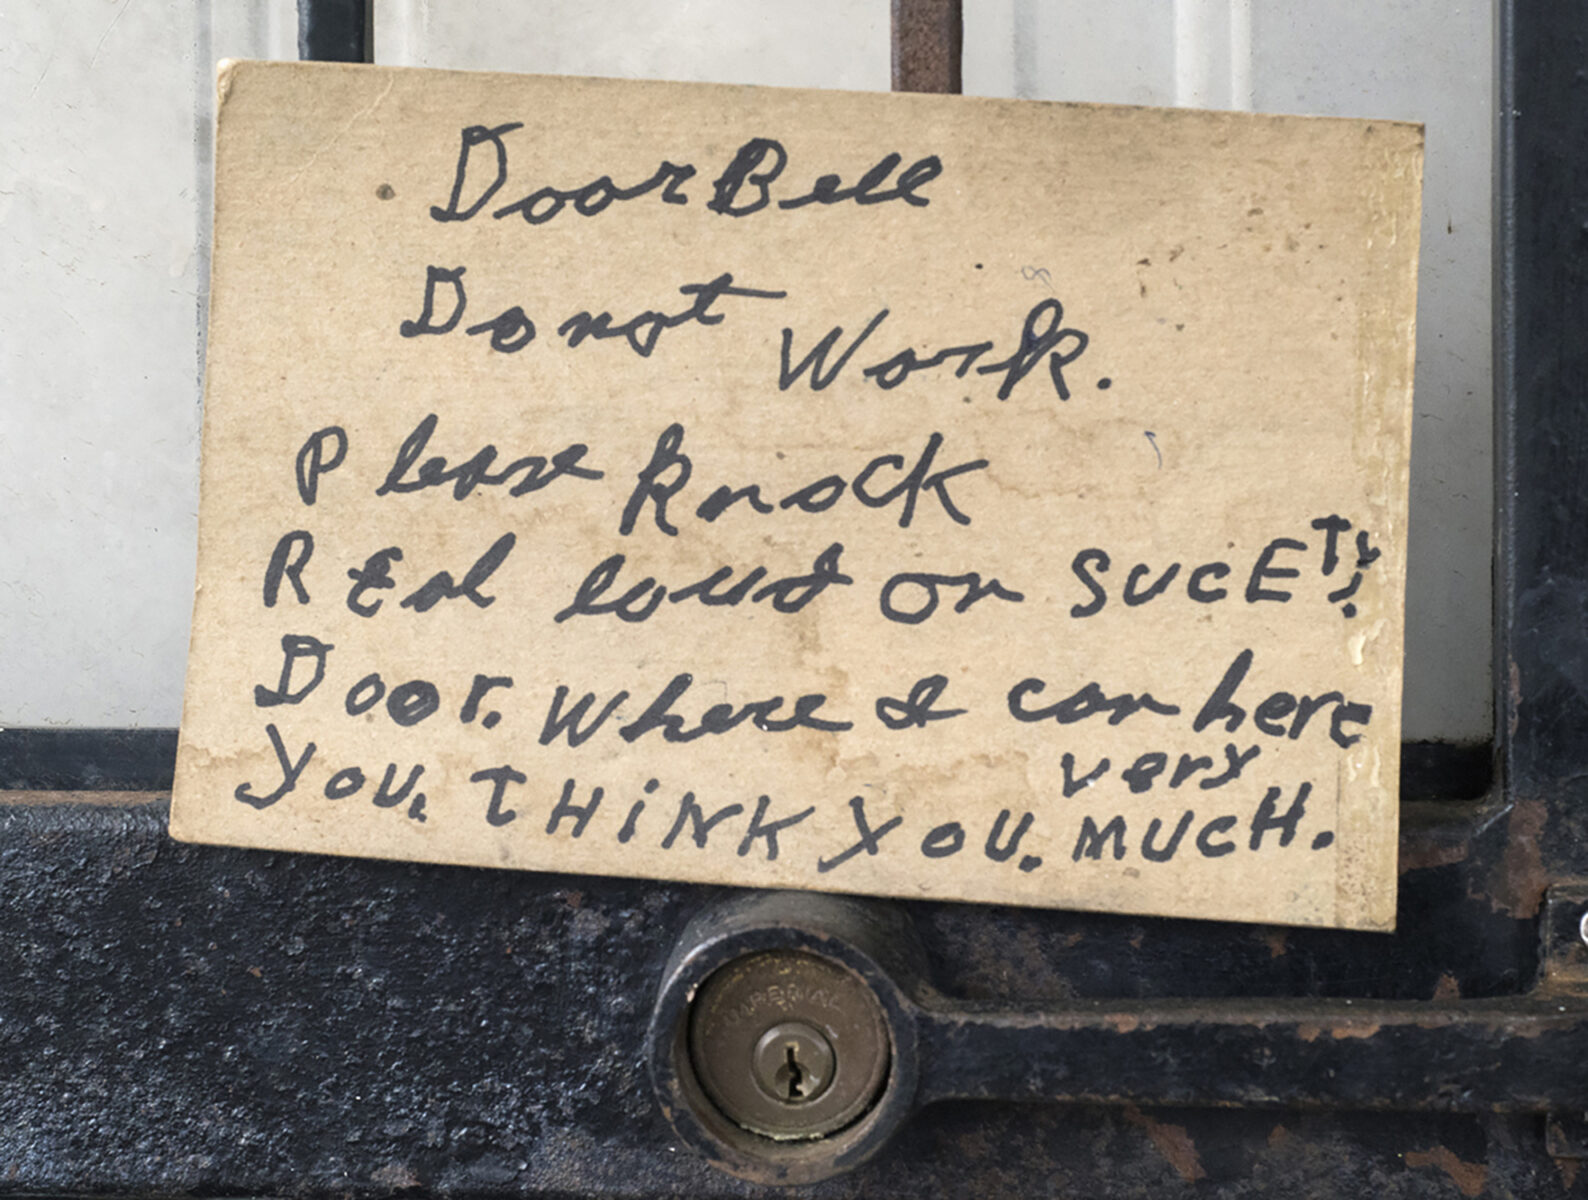 Door Bell
Do not Work.
Please knock
REal loud on SUCETY
Door. Where I can here
you. THiNK YOU. very MUCH.
IMPERIAL